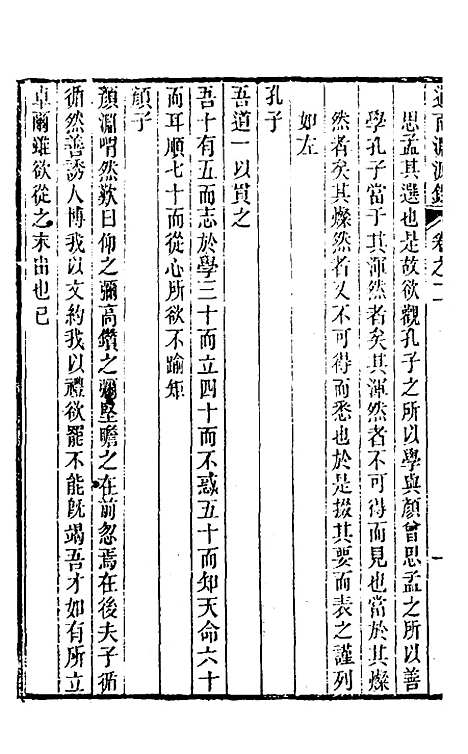 道南淵源錄 卷之二 一
思孟其選也是故欲觀孔子之所以學與顏曾思孟之所以善
學孔子當于其渾然者矣其渾然者不可得而見也當於其燦
然者矣其燦然者又不可得而悉也於是掇其要而表之謹列
如左
孔子
吾道一以貫之
吾十有五而志於學三十而立四十而不惑五十而知天命六十
而耳順七十而從心所欲不踰矩
顏子
顏淵喟然歎曰仰之彌高鑽之彌堅瞻之在前忽焉在後夫子循
循然善誘人博我以文約我以禮欲罷不能旣竭吾才如有所立
卓爾雖欲從之末由也已